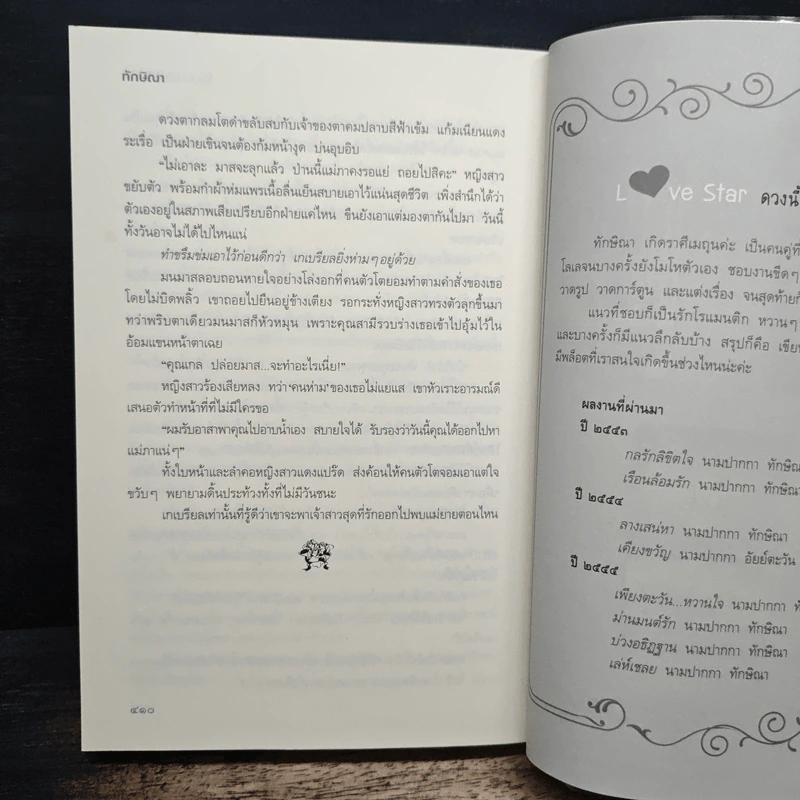 ทักษิณา
ดวงตากลมโตดำขลับสบกับเจ้าของตาคมปลาบสีฟ้าเข้ม แก้มเนียนแดง
ระเรื่อ เป็นฝ่ายเขินจนต้องก้มหน้างุด บ่นอุบอิบ
“ไม่เอาละ มาสจะลุกแล้ว ป่านนี้แม่ภาคงรอแย่ ถอยไปสิคะ” หญิงสาว
ขยับตัว พร้อมกำผ้าห่มแพรเนื้อลื่นเย็นสบายเอาไว้แน่นสุดชีวิต เพิ่งสำนึกได้ว่า
ตัวเองอยู่ในสภาพเสียเปรียบอีกฝ่ายแค่ไหน ขืนยังเอาแต่มองตากันไปมา วันนี้
ทั้งวันอาจไม่ได้ไปไหนแน่
ทำขรึมข่มเอาไว้ก่อนดีกว่า เกเบรียลยิ่งห่ามๆ อยู่ด้วย
มนมาสลอบถอนหายใจอย่างโล่งอกที่คนตัวโตยอมทำตามคำสั่งของเธอ
โดยไม่บิดพลิ้ว เขาถอยไปยืนอยู่ข้างเตียง รอกระทั่งหญิงสาวทรงตัวลุกขึ้นมา
ทว่าพริบตาเดียวมนมาสก็หัวหมุน เพราะคุณสามีรวบร่างเธอเข้าไปอุ้มไว้ใน
อ้อมแขนหน้าตาเฉย
“คุณเกล ปล่อยมาส...จะทำอะไรเนี่ย!”
หญิงสาวร้องเสียหลง ทว่า ‘คนห่าม’ ของเธอไม่แยแส เขาหัวเราะอารมณ์ดี
เสนอตัวทำหน้าที่ที่ไม่มีใครขอ
“ผมรับอาสาพาคุณไปอาบน้ำเอง สบายใจได้ รับรองว่าวันนี้คุณได้ออกไปหา
แม่ภาแน่ๆ”
ทั้งใบหน้าและลำคอหญิงสาวแดงแปร๊ด ส่งค้อนให้คนตัวโตจอมเอาแต่ใจ
ขวับๆ พยายามดิ้นประท้วงทั้งที่ไม่มีวันชนะ
เกเบรียลเท่านั้นที่รู้ดีว่าเขาจะพาเจ้าสาวสุดที่รักออกไปพบแม่ยายตอนไหน
๔๑๐
L ve Star ดวงนี้
ทักษิณา เกิดราศีเมถุนค่ะ เป็นคนคู่ที่
โลเลจนบางครั้งยังโมโหตัวเอง ชอบงานขีดๆ
วาดรูป วาดการ์ตูน และแต่งเรื่อง จนสุดท้ายก็
แนวที่ชอบก็เป็นรักโรแมนติก หวานๆ
และบางครั้งก็มีแนวลึกลับบ้าง สรุปก็คือ เขียน
มีพล็อตที่เราสนใจเกิดขึ้นช่วงไหนน่ะค่ะ
ผลงานที่ผ่านมา
ปี ๒๕๕๓
กลรักลิขิตใจ นามปากกา ทักษิณา
เรือนล้อมรัก นามปากกา ทักษิณา
ปี ๒๕๕๔
ลางเสน่หา นามปากกา ทักษิณา
เคียงขวัญ นามปากกา อัยย์ตะวัน
ปี ๒๕๕๕
เพียงตะวัน...หวานใจ นามปากกา
ม่านมนต์รัก นามปากกา ทักษิณา
บ่วงอธิฏฐาน นามปากกา ทักษิณา
เล่ห์เชลย นามปากกา ทักษิณา